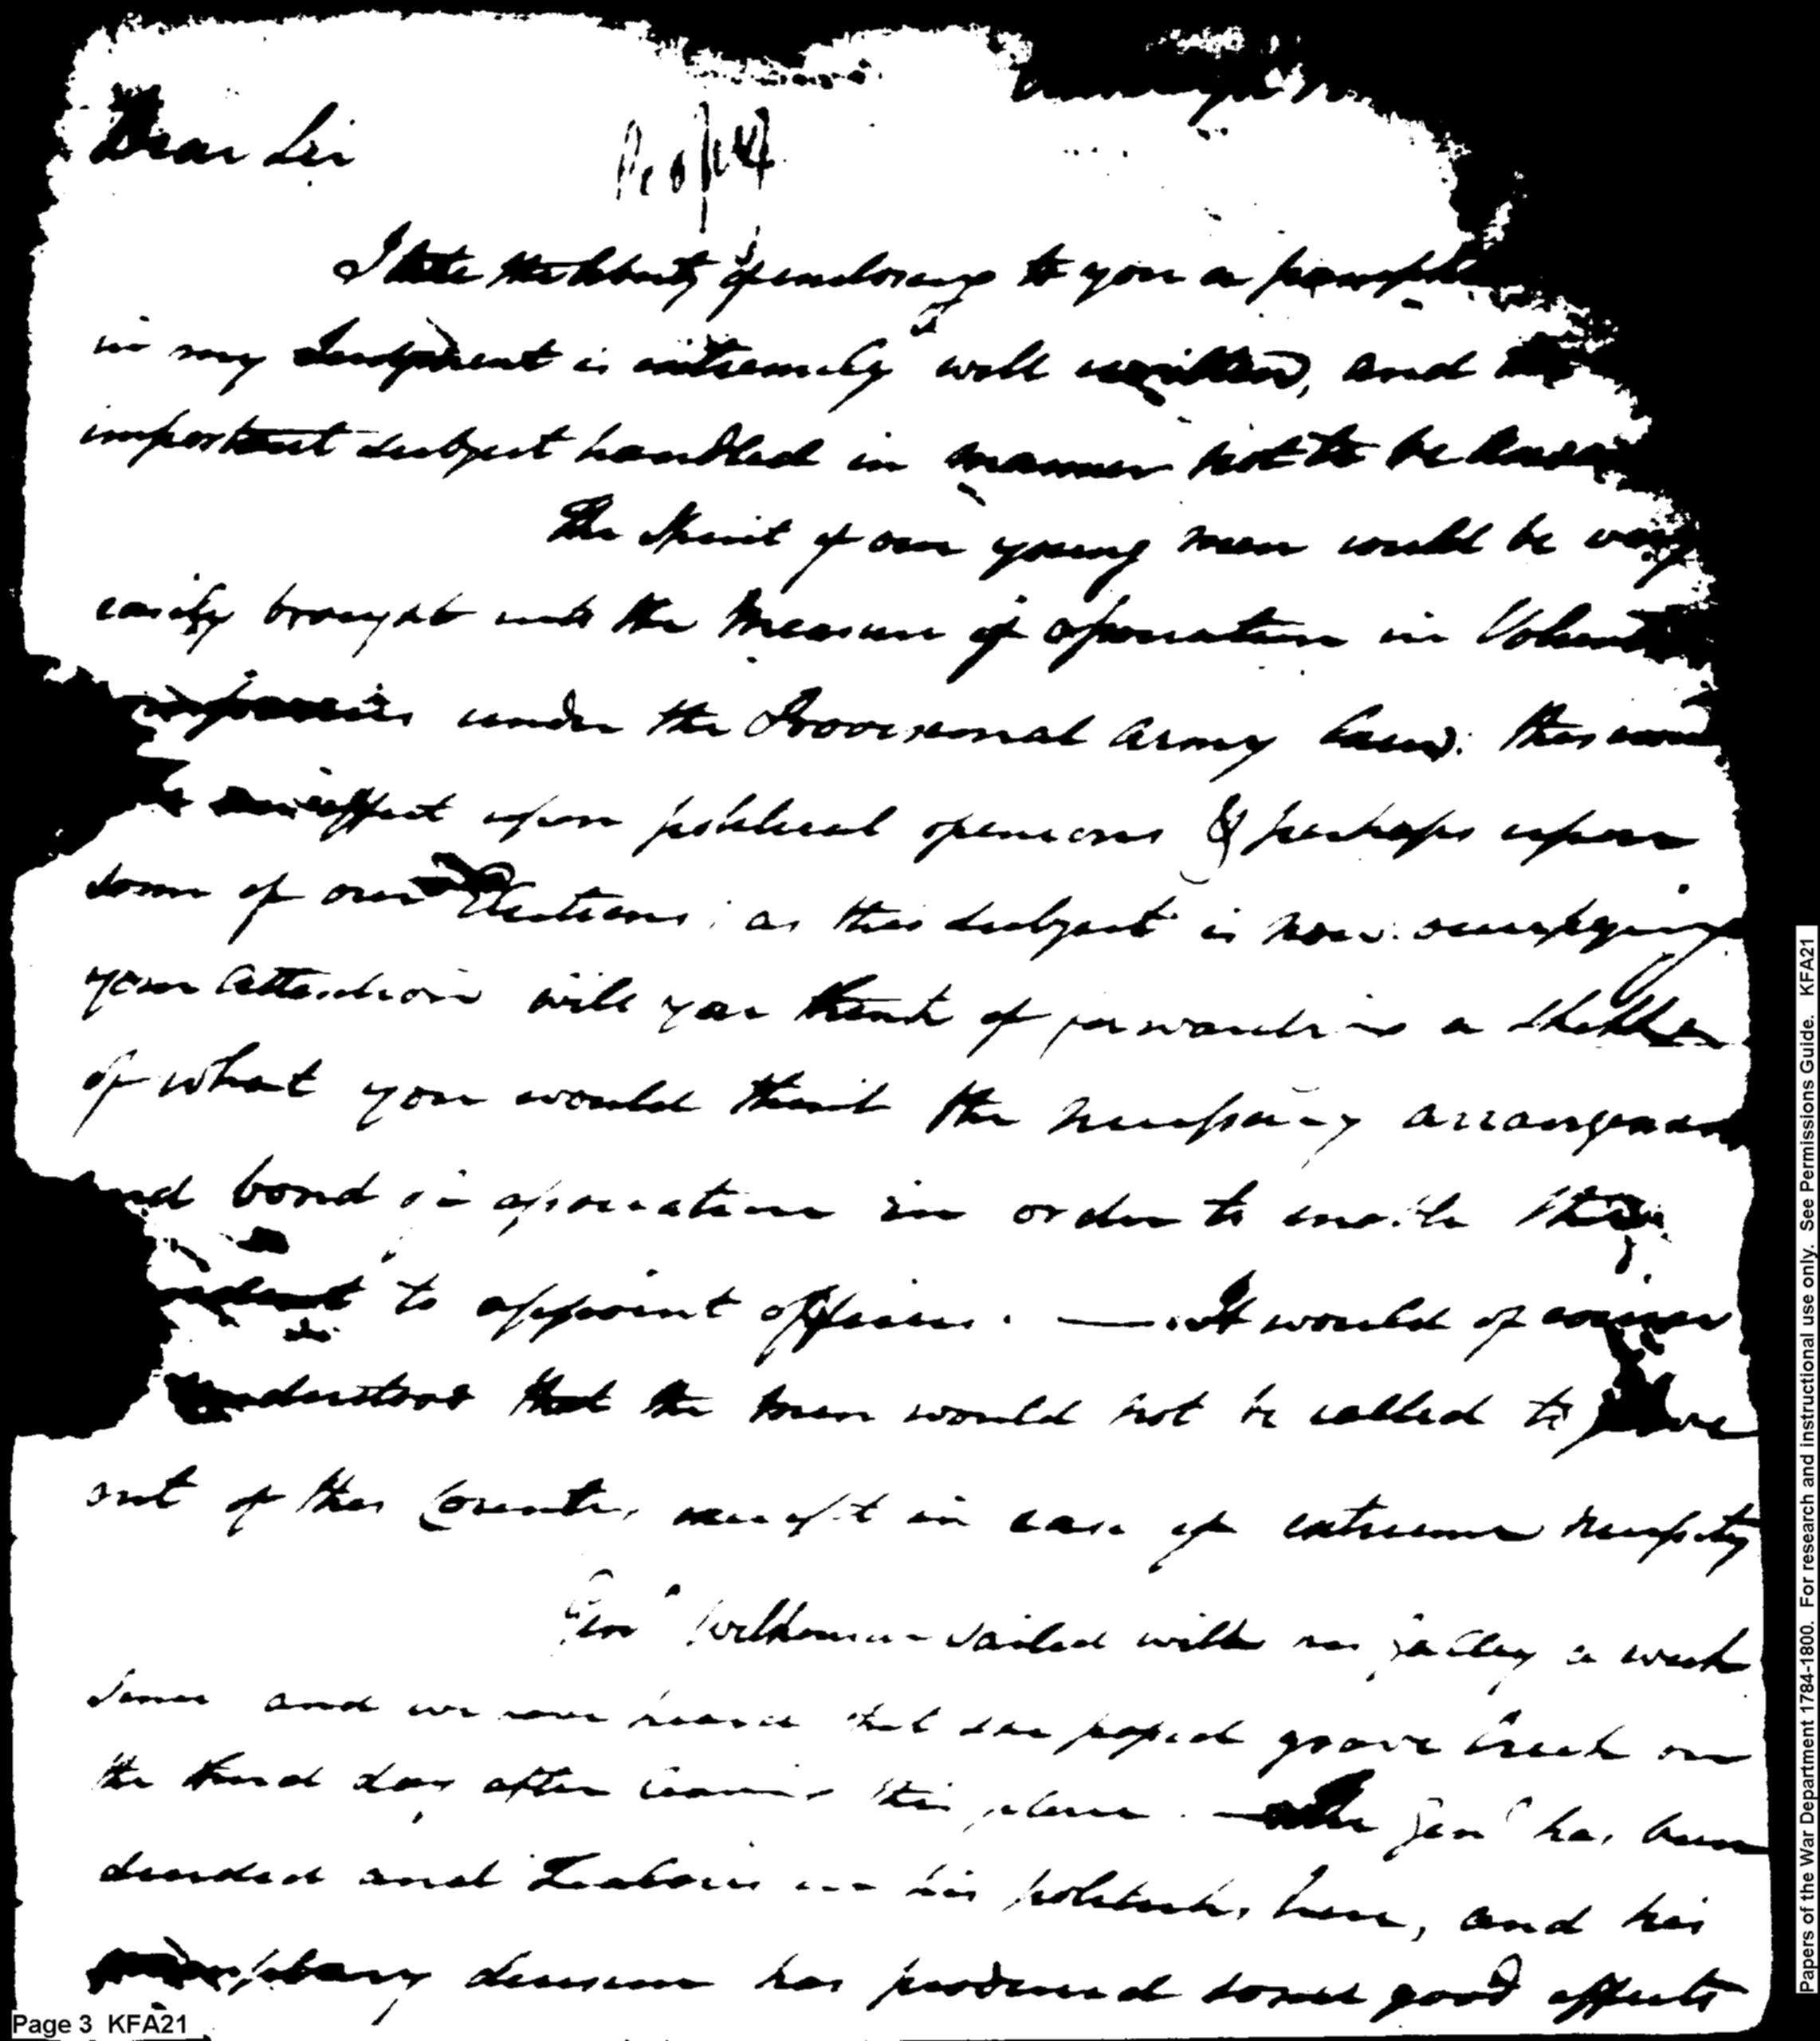 Dear Sir
I take the liberty of enclosing to you a
in my Judgment is extremely well written, and
important subject handled in manner not to be
The spirit of our young men would be very
easily brought into the measure of association in
companies under the Provisional Army Law: this
effect upon political opinions & perhaps upon
some of our Elections; as this subject is now occupying
your attention will you think of forwarding a
of what you would think the necessary
and bond of association in order to enable the
to appoint officers. — It would of course
understood that the men would not be called to
out of this Country except in case of extreme necessity
Genl Wilkinson sailed with his galley a week
since and we have heard that she passed grave Creek on
the third day after leaving this place. — The Genl has been
decided and Zealous in his politicks, here, and his
decision has produced some good effects
Page 3 KFA21
Papers of the War Department 1784-1800. For research and instructional use only. See Permissions Guide. KFA21